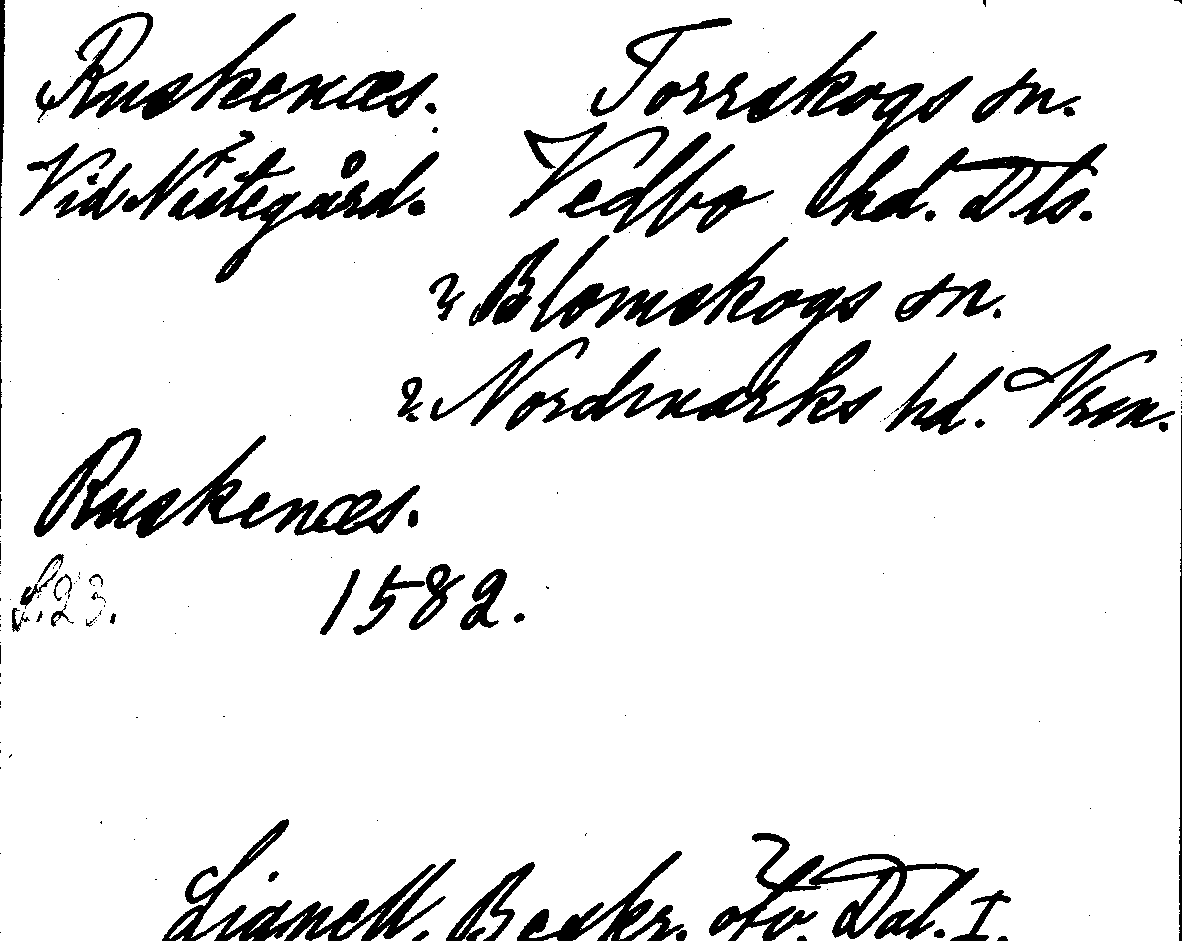 Ruskenæs. Torrskogs sn.
Vid Nästegård. Vedbo hd. Dls.
? Blomskogs sn.
? Nordmarks hd. Vrm.
Ruskenæs.
S. 23. 1582.
Lignell, Beskr. öfv. Dal. I.